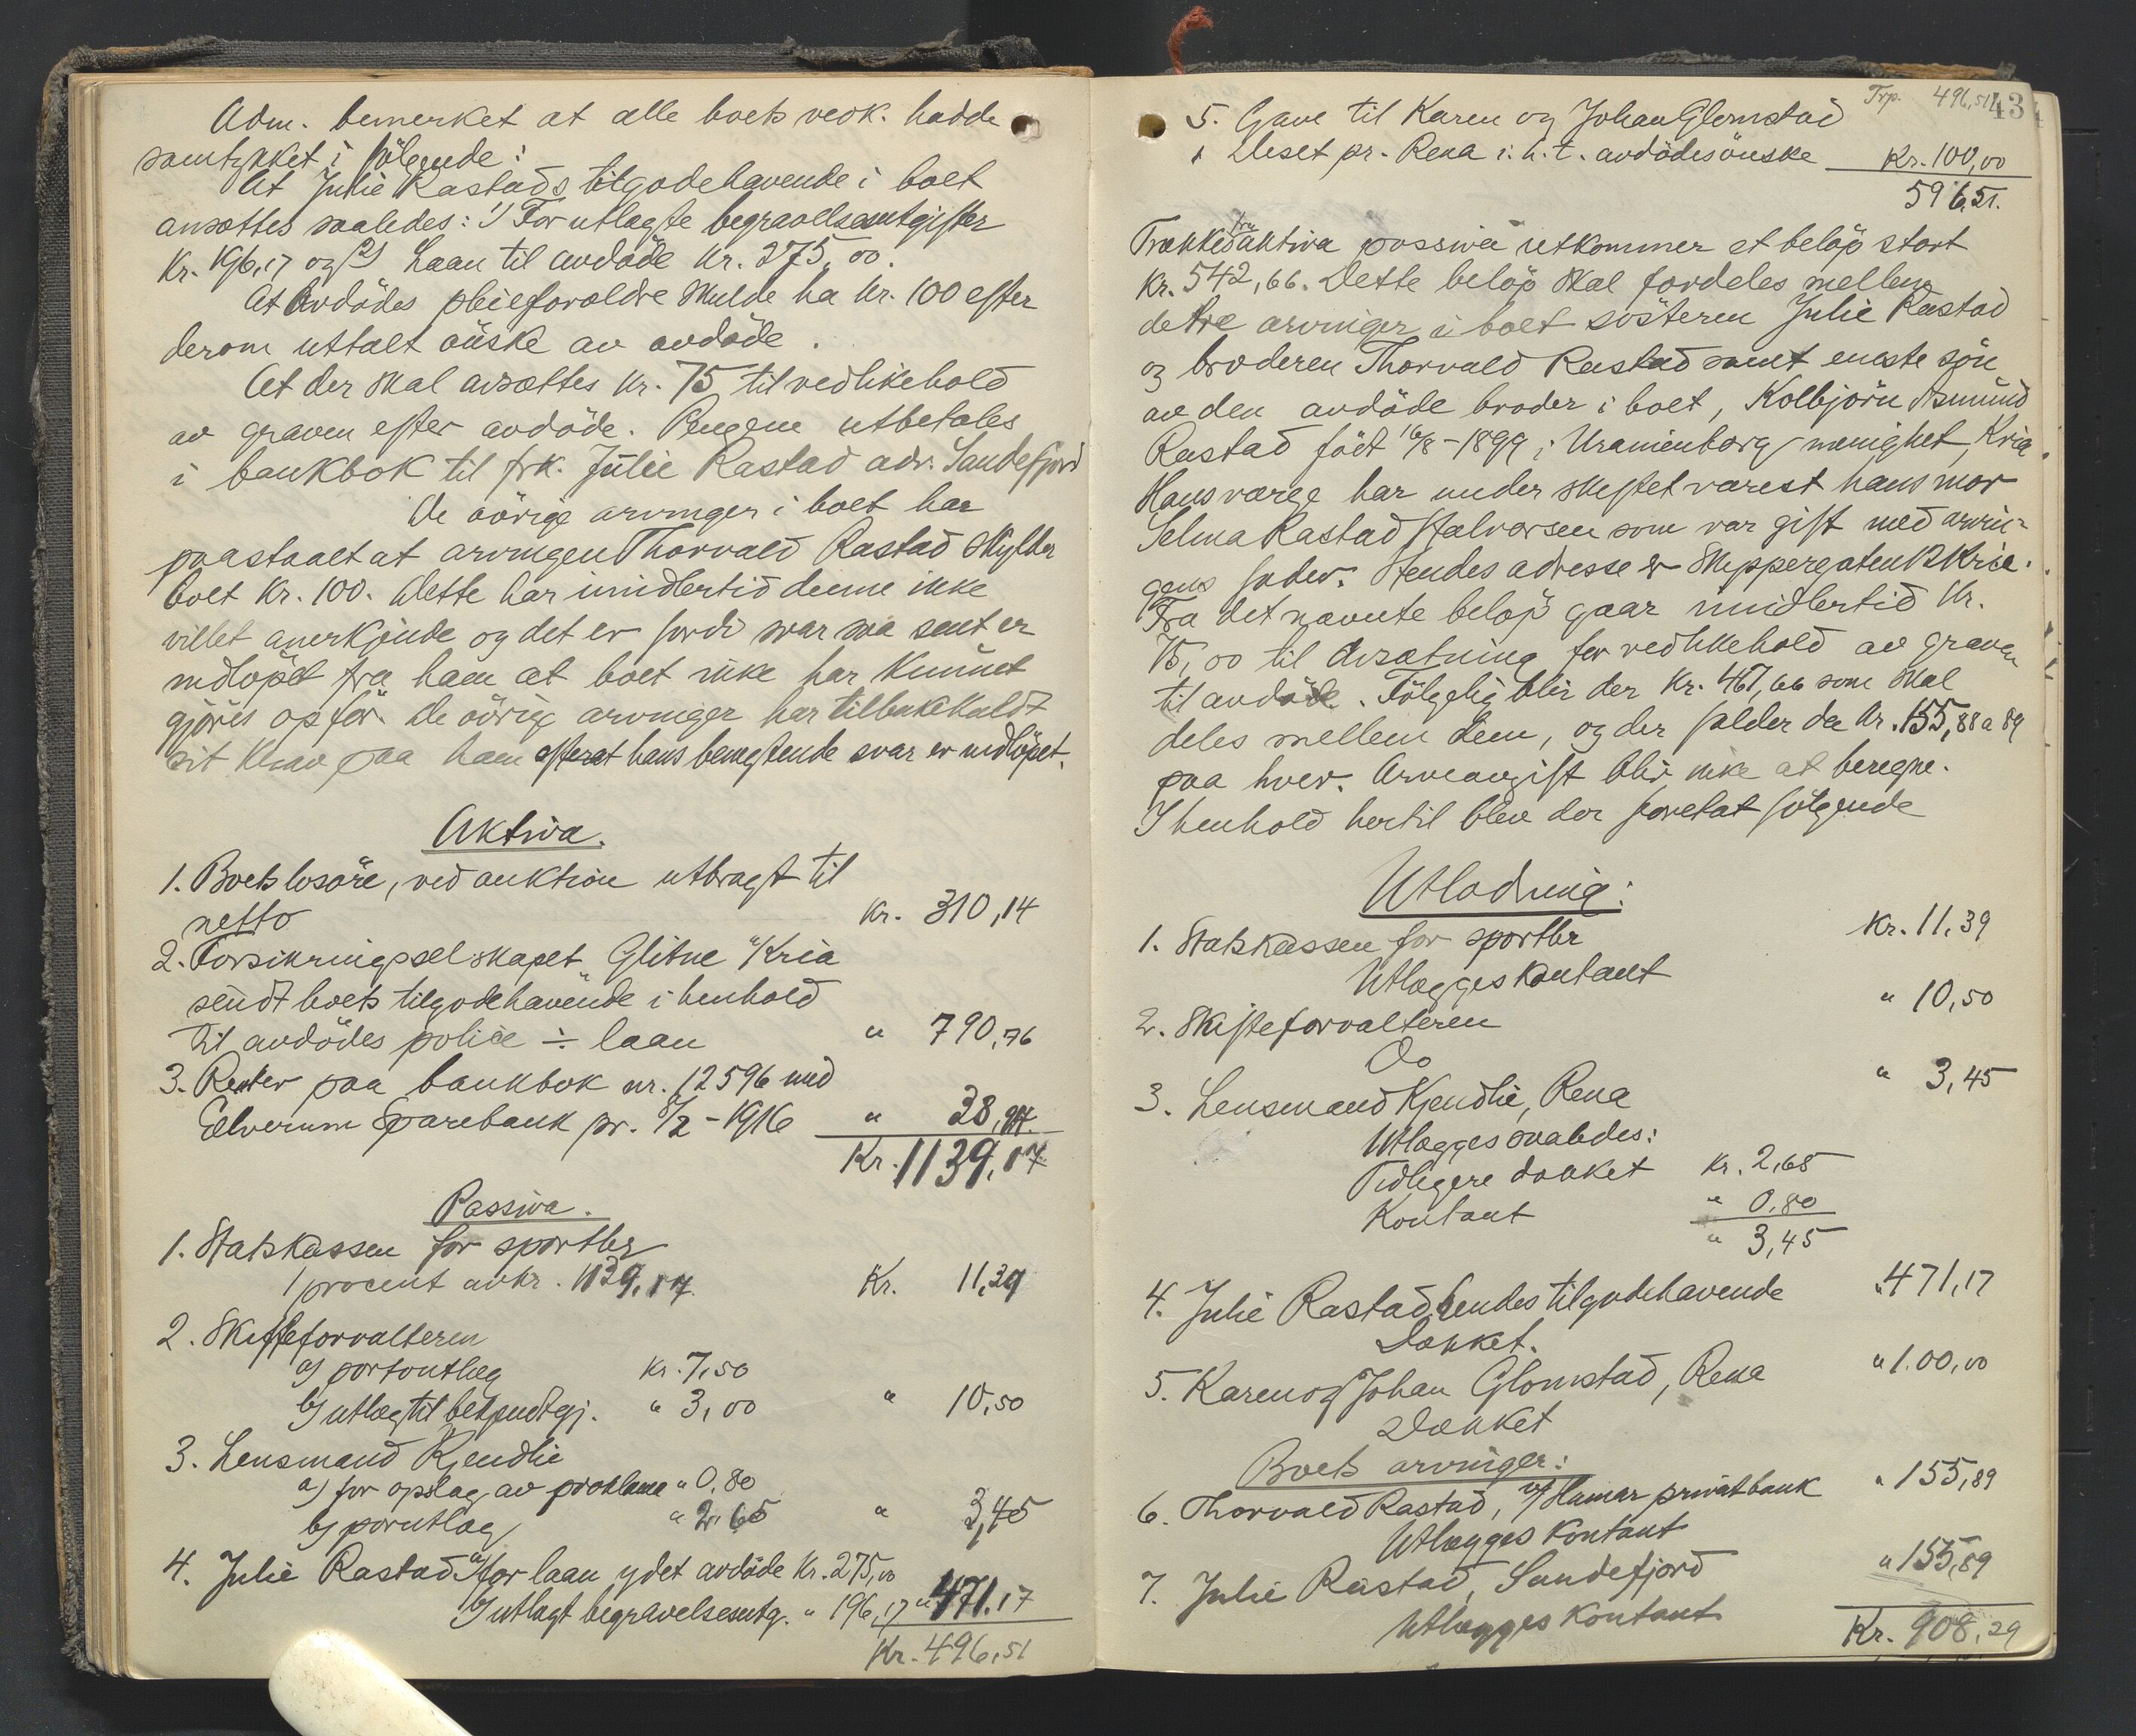 Adm. bemerket at alle boets vedk. hadde
samtykket i følgende:
At Julie Rastads tilgodehavende i boet
ansættes saaledes: 1) For utlagte begravelsesutgifter
Kr. 196,17 og 2) Laan til avdöde Kr. 275,00.
At Avdödes pleieforældre skulde ha kr. 100 efter
derom uttalt önske av avdöde.
At der skal avsættes kr. 75 til vedlikehold
av graven efter avdöde. Pengene utbetales
i bankbok til frk. Julie Rastad adr. Sandefjord
De övrige arvinger i boet har
paastaaet at arvingen Thorvald Rastad skylder
boet Kr. 100. Dette har imidlertid denne ikke
villet anerkjende og det er fordi svar saa sent er
indløpet fra ham at boet ikke har kunnet
gjöres op för. De övrige arvinger har tilbakekaldt
sit krav paa ham efterat hans benegtende svar er indlöpet.
Aktiva.
1. Boets lösöre, ved auktion utbragt til
netto Kr. 310,14
2. Forsikringsselskapet "Glitne" Kria
sendt boets tilgodehavende i henhold
til avdödes police ÷ laan " 790,76
3. Renter paa bankbok nr. 12596 med
Elverum Sparebank pr. /2 - 1916 " 38,
Kr. 1139,17
Passiva.
1. Statskassen for sportler
1 procent av kr. 1139,17. Kr. 11,39
2. Skifteforvalteren
a) portoutlæg Kr. 7,50
b) utlæg til bekjendtgj. " 3,00 " 10,50
3. Lensmand Kjendlie
a) for opslag av proklama " 0,80
b) portoutlæg " 2,65 " 3,45
4. Julie Rastad a) for laan ydet avdöde Kr. 275,00
b) utlagt begravelsesutg. " 196,17 " 471.17
Kr. 496,51
Trp. 496,51
43
5. Gave til Karen og Johan Glomstad
Deset pr. Rena i.h.t. avdödes önske Kr. 100,00
596,51.
Trækkes fra aktiva passiva utkommer et belöp stort
Kr. 542,66. Dette belöp skal fordeles mellem
de tre arvinger i boet söstern Julie Rastad
og broderen Thorvald Rastad samt eneste sön
av den avdöde broder i boet, Kolbjörn Asmund
Rastad födt 16/8 - 1899 i Uranienborg menighet, Kria.
Hans værge har under skiftet værest hans mor
Selma Rastad Halvorsen som var gift med arvin-
gens fader. Hendes adresse er Skippergaten Kria.
Fra det nævnte belöp gaar imidlertid Kr.
75,00 til Avsætning for vedlikehold av graven
til avdöde. Fölgelig blir der Kr. 467,66 som skal
deles mellem dem, og der falder da kr. 155,88 a 89
paa hver. Arveavgift blir ikke at beregne.
I henhold hertil blev der foretat fölgende
Utlodning:
1. Statskassen for sportler Kr. 11,39
Utlægges kontant
2. Skifteforvalteren " 10,50
Do
3. Lensmand Kjendlie, Rena " 3,45
Utlægges saaledes:
Tidligere dækket Kr. 2,65
Kontant " 0,80
" 3,45
4. Julie Rastad, hendes tilgodehavende " 471,17
Dækket.
5. Karen og Johan Glomstad, Rena " 1.00,00
Dækket
Boets arvinger:
6. Thorvald Rastad, v/ Hamar privatbank " 155,89
Utlægges kontant
7. Julie Rastad, Sandefjord " 155,89
Utlægges kontant
Kr. 908,29